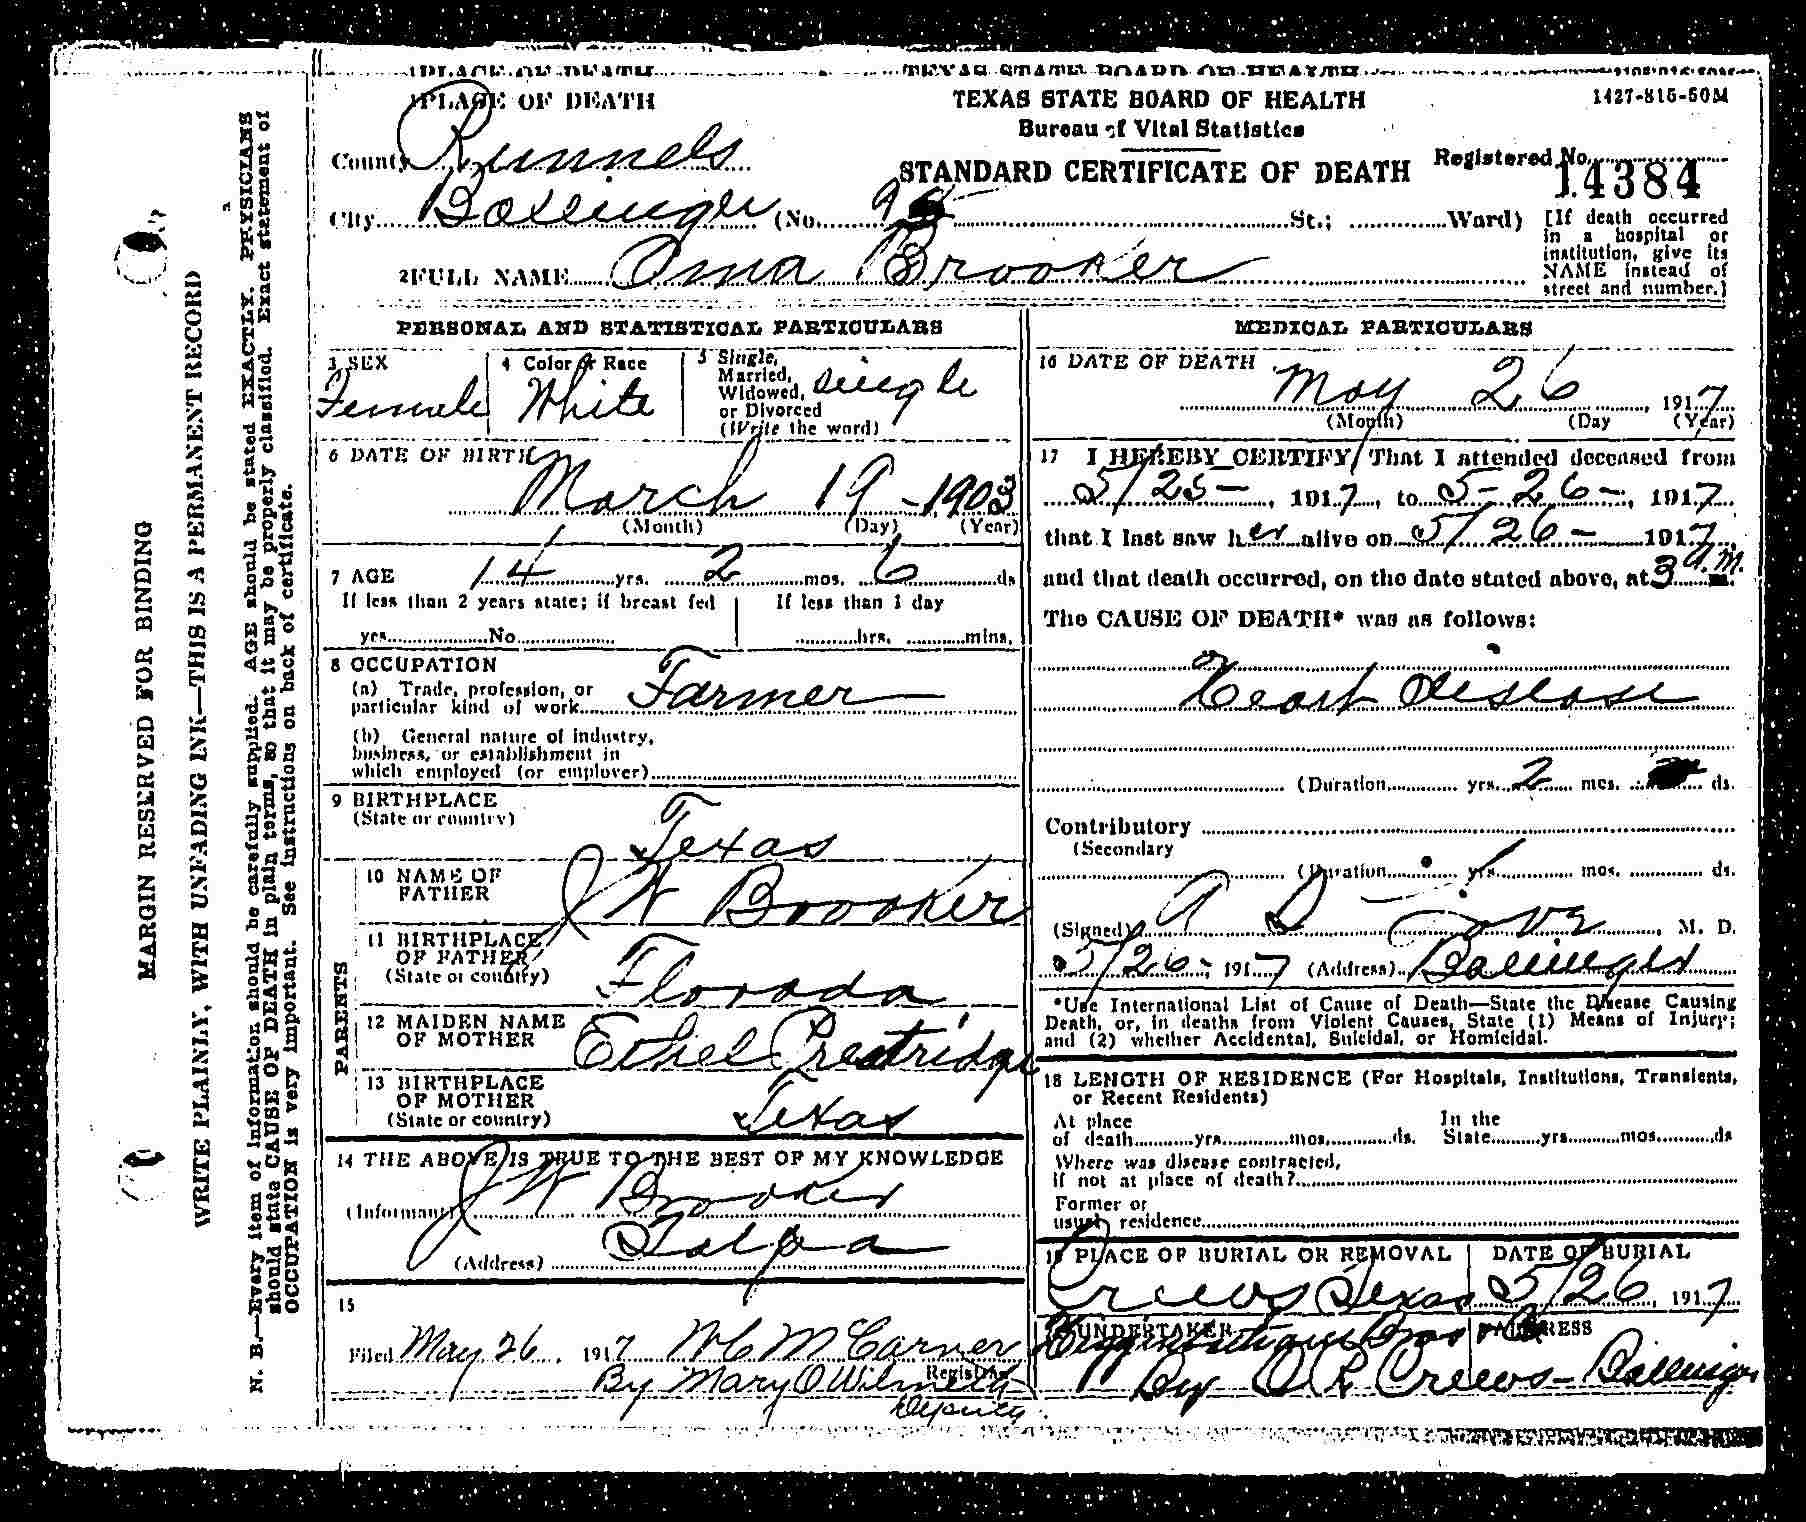 1 PLACE OF DEATH
TEXAS STATE BOARD OF HEALTH
1427-816-50M
Bureau of Vital Statistics
County Runnels
STANDARD CERTIFICATE OF DEATH
Registered No. 14384
City Ballinger (No. St.; Ward)
[If death occurred in a hospital or institution, give its NAME instead of street and number.]
2 FULL NAME Oma Brooker
PERSONAL AND STATISTICAL PARTICULARS
3 SEX Female
4 Color or Race White
5 Single, Married, Widowed, or Divorced (Write the word) Single
6 DATE OF BIRTH
March 19 - 1903
(Month) (Day) (Year)
7 AGE 14 yrs. 2 mos. 6 ds
If less than 2 years state; if breast fed
yes No
If less than 1 day
hrs. mins.
8 OCCUPATION
(a) Trade, profession, or
particular kind of work Farmer
(b) General nature of industry,
business, or establishment in
which employed (or employer)
9 BIRTHPLACE
(State or country) Texas
PARENTS
10 NAME OF
FATHER J W Brooker
11 BIRTHPLACE
OF FATHER
(State or country) Florada
12 MAIDEN NAME
OF MOTHER Ethel Prestridge
13 BIRTHPLACE
OF MOTHER
(State or country) Texas
14 THE ABOVE IS TRUE TO THE BEST OF MY KNOWLEDGE
(Informant) J W Brooker
(Address) Talpa
15
Filed May 26, 1917 W C McCarver
Registrar
By Mary O Wilmeth
Deputy.
MEDICAL PARTICULARS
16 DATE OF DEATH
May 26, 1917
(Month) (Day (Year)
17 I HEREBY CERTIFY, That I attended deceased from
5/25-, 1917, to 5-26-, 1917
that I last saw her alive on 5/26- 1917,
and that death occurred, on the date stated above, at 3 a.m.
The CAUSE OF DEATH* was as follows:
Heart Disease
(Duration yrs. 2 mos. ds.
Contributory
(Secondary
(Duration yrs. mos. ds.
(Signed) , M. D.
5/26-, 1917 (Address) Ballinger
*Use International List of Cause of Death—State the Disease Causing
Death, or, in deaths from Violent Causes, State (1) Means of Injury;
and (2) whether Accidental, Suicidal, or Homicidal.
18 LENGTH OF RESIDENCE (For Hospitals, Institutions, Transients,
or Recent Residents)
At place In the
of death yrs. mos. ds. State yrs. mos. ds
Where was disease contracted,
if not at place of death?
Former or
usual residence
19 PLACE OF BURIAL OR REMOVAL
Crews Texas
DATE OF BURIAL
5/26, 1917
UNDERTAKER
ADDRESS
Higginbotham Bros & Co
By O R Crews - Ballinger
MARGIN RESERVED FOR BINDING
WRITE PLAINLY, WITH UNFADING INK—THIS IS A PERMANENT RECORD
N. B.—Every item of information should be carefully supplied. AGE should be stated EXACTLY. PHYSICIANS
should state CAUSE OF DEATH in plain terms, so that it may be properly classified. Exact statement of
OCCUPATION is very important. See instructions on back of certificate.